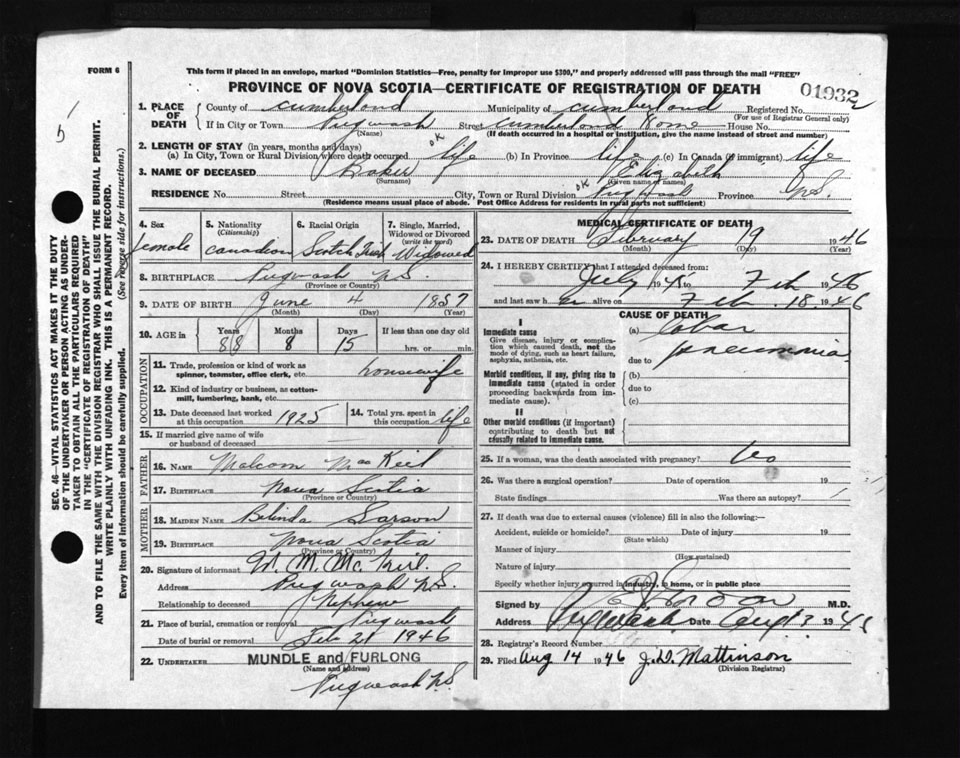 FORM 6
This form if placed in an envelope, marked "Dominion Statistics—Free, penalty for improper use $300," and properly addressed will pass through the mail "FREE"
PROVINCE OF NOVA SCOTIA—CERTIFICATE OF REGISTRATION OF DEATH
01932
1. PLACE OF DEATH
County of Cumberland Municipality of Cumberland Registered No.
(For use of Registrar General only)
If in City or Town Pugwash Street Cumberland Home House No.
(Name) (If death occurred in a hospital or institution, give the name instead of street and number)
2. LENGTH OF STAY (in years, months and days)
(a) In City, Town or Rural Division where death occurred OK life (b) In Province life (c) In Canada (if immigrant) life
3. NAME OF DECEASED Baker Elizabeth
(Surname) (Given name or names)
RESIDENCE No. Street City, Town or Rural Division OK Pugwash Province N.S.
(Residence means usual place of abode. Post Office Address for residents in rural parts not sufficient)
4. Sex female
5. Nationality (Citizenship) Canadian
6. Racial Origin Scotch Irish
7. Single, Married, Widowed or Divorced (write the word) Widowed
8. BIRTHPLACE Pugwash N.S.
(Province or Country)
9. DATE OF BIRTH June 4 1857
(Month) (Day) (Year)
10. AGE in Years Months Days If less than one day old
88 8 15 hrs. or min.
OCCUPATION
11. Trade, profession or kind of work as spinner, teamster, office clerk, etc. housewife
12. Kind of industry or business, as cotton-mill, lumbering, bank, etc.
13. Date deceased last worked at this occupation 1925
14. Total yrs. spent in this occupation life
15. If married give name of wife or husband of deceased
FATHER
16. NAME Malcom MacKeil
17. BIRTHPLACE Nova Scotia
(Province or Country)
MOTHER
18. MAIDEN NAME Belinda
19. BIRTHPLACE Nova Scotia
(Province or Country)
20. Signature of informant M. M. McKeil.
Address Pugwash N.S.
Relationship to deceased Nephew
21. Place of burial, cremation or removal Pugwash
Date of burial or removal Feb 21 1946
22. UNDERTAKER MUNDLE and FURLONG
(Name and address)
Pugwash N.S.
MEDICAL CERTIFICATE OF DEATH
23. DATE OF DEATH February 19 1946
(Month) (Day) (Year)
24. I HEREBY CERTIFY that I attended deceased from:
July 1945 to Feb 1946
and last saw h er alive on Feb. 18 1946
CAUSE OF DEATH
I
Immediate cause
Give disease, injury or complication which caused death, not the mode of dying, such as heart failure, asphyxia, asthenia, etc.
(a) Lobar
due to pneumonia
Morbid conditions, if any, giving rise to immediate cause (stated in order proceeding backwards from immediate cause).
(b)
due to
(c)
II
Other morbid conditions (if important) contributing to death but not causally related to immediate cause.
25. If a woman, was the death associated with pregnancy? No
26. Was there a surgical operation? Date of operation 19
State findings Was there an autopsy?
27. If death was due to external causes (violence) fill in also the following:—
Accident, suicide or homicide? Date of injury 19
(State which)
Manner of injury
(How sustained)
Nature of injury
Specify whether injury occurred in industry, in home, or in public place
Signed by M.D.
Address Pugwash Date Aug 3 194
28. Registrar's Record Number
29. Filed Aug 14 1946 J.D. Mattinson
(Division Registrar)
SEC. 46—VITAL STATISTICS ACT MAKES IT THE DUTY
OF THE UNDERTAKER OR PERSON ACTING AS UNDER-
TAKER TO OBTAIN ALL THE PARTICULARS REQUIRED
IN THE "CERTIFICATE OF REGISTRATION OF DEATH"
AND TO FILE THE SAME WITH THE DIVISION REGISTRAR WHO SHALL ISSUE THE BURIAL PERMIT.
WRITE PLAINLY WITH UNFADING INK. THIS IS A PERMANENT RECORD.
Every item of information should be carefully supplied. (See reverse side for instructions.)